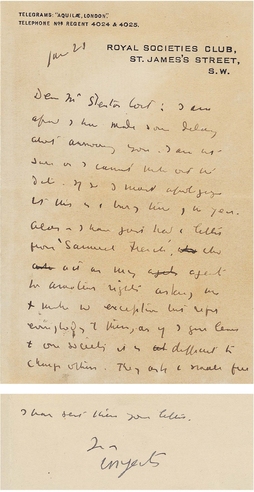 TELEGRAMS: "AQUILÆ, LONDON".
TELEPHONE Nos REGENT 4024 & 4025.
ROYAL SOCIETIES CLUB,
ST. JAMES'S STREET,
S.W.
Dear Mr I am
I have made some delay
about answering you. I am not
sure as I cannot make out the
date. If so I must apologize
it is a busy time of the year.
Also I have just had a letter
from 'Samuel French', who
act as my agent
for amateur rights asking me
to make no exception but refer
everybody to them, as if I give leave
to one society it is difficult to
charge others. They ask a small fee
I have sent them your letter.
WB Yeats